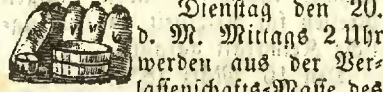 Dienſtag den 20.
d. M. Mittags 2 Uhr
werden aus der Ver⸗
laſſenſchafts⸗Maſſe des